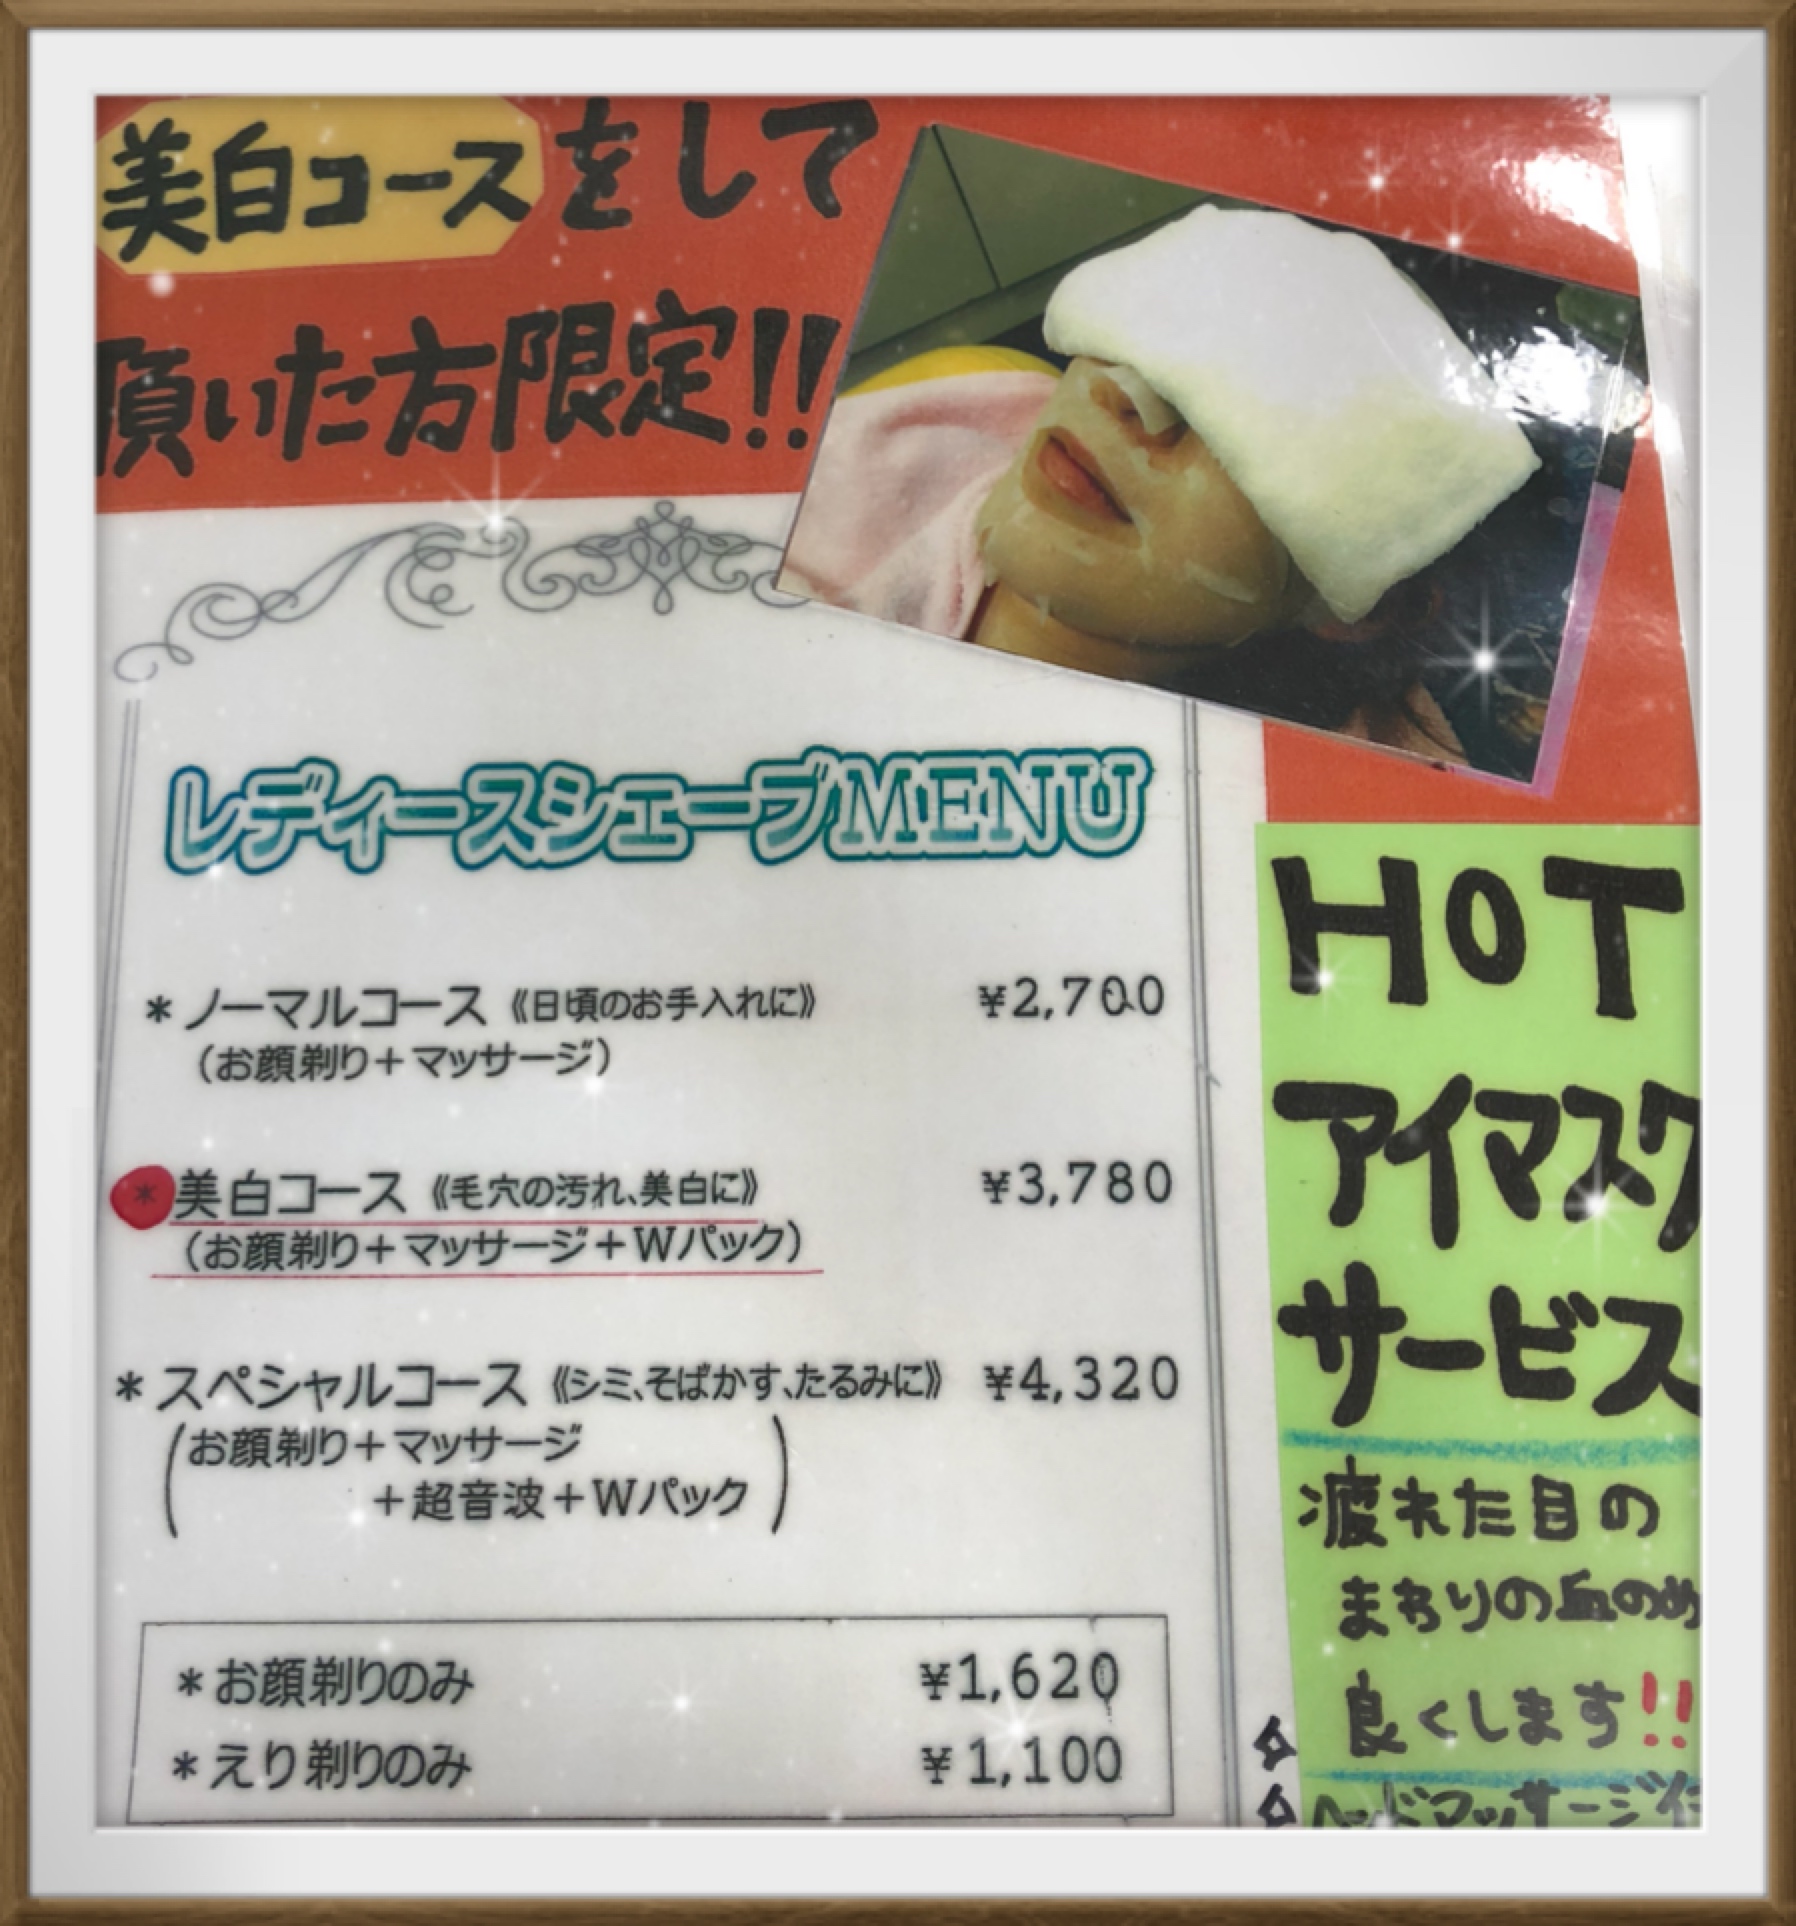 美白コースをして
頂いた方限定!!
レディースシェーブMENU
*ノーマルコース《日頃のお手入れに》 ¥2,700
(お顔剃り+マッサージ)
*美白コース《毛穴の汚れ、美白に》 ¥3,780
(お顔剃り+マッサージ+Wパック)
*スペシャルコース《シミ、そばかす、たるみに》 ¥4,320
(お顔剃り+マッサージ
+超音波+Wパック)
*お顔剃りのみ ¥1,620
*えり剃りのみ ¥1,100
HOT
アイマスク
サービス
疲れた目の
まわりの血のめ
良くします!!
ヘッドマッサージ付